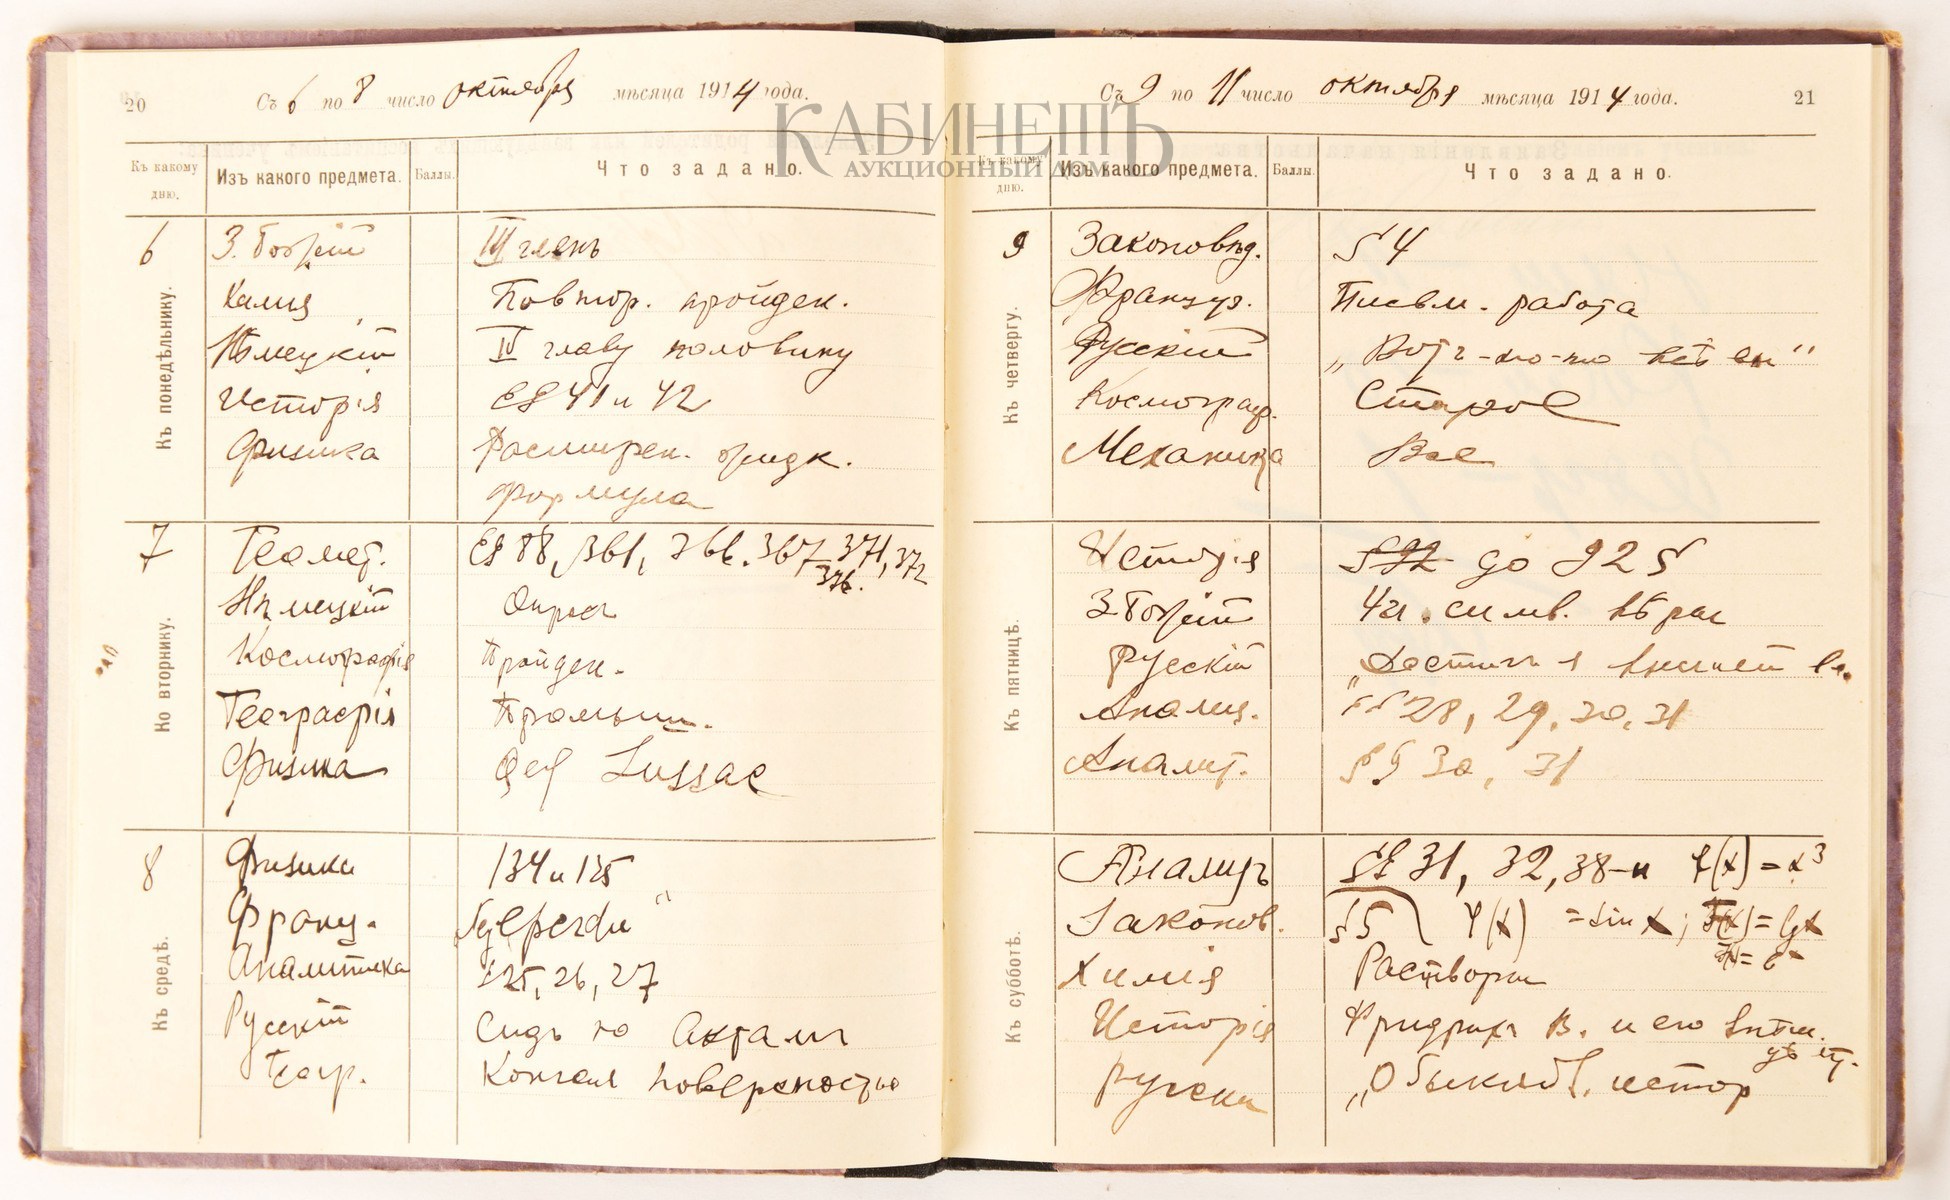 20
Съ 6 по 8 число октября мѣсяца 1914 года.
КАБИНЕТЪ
АУКЦИОННЫЙ ДОМ
Къ какому дню.
Изъ какого предмета.
Баллы.
Что задано.
6
Къ понедѣльнику.
З. Божій
III членъ
Химія
Повтор. пройден.
Нѣмецкій
IV главу половину
Исторія
§§ 41 и 42
Физика
Расширен. жидк.
формула
7
Ко вторнику.
Геомет.
§§ 88, 361, 366. 367, 371, 372
376.
Нѣмецкій
Опросъ
Космографія
Пройден.
Географія
Промышл.
Физика
Gay Lussac
8
Къ средѣ.
Физика
134 и 135
Франц.
Аналитика
§ 25, 26, 27
Русскій
Геогр.
поверхностью
Съ 9 по 11 число октября мѣсяца 1914 года.
21
Къ какому дню.
Изъ какого предмета.
Баллы.
Что задано.
9
Къ четвергу.
Законовѣд.
§ 4
Француз.
Письм. работа
Русскій
Космограф.
Старое
Механика
Все
Къ пятницѣ.
Исторія
до 92 §
З. Божій
4 чл. симв. вѣры
Русскій
„Достигъ я высшей вл.
Анализ.
§§ 28, 29, 30, 31
Аналит.
§§ 30, 31
Къ субботѣ.
Анализъ
§§ 31, 32, 38-и f(x) = x³
Законов.
§ 5 φ(x) = sin x; F(x) = lg x
Химія
Растворы
Исторія
Фридрихъ В. и его внѣш.
Русскій
„Обыкнов. истор